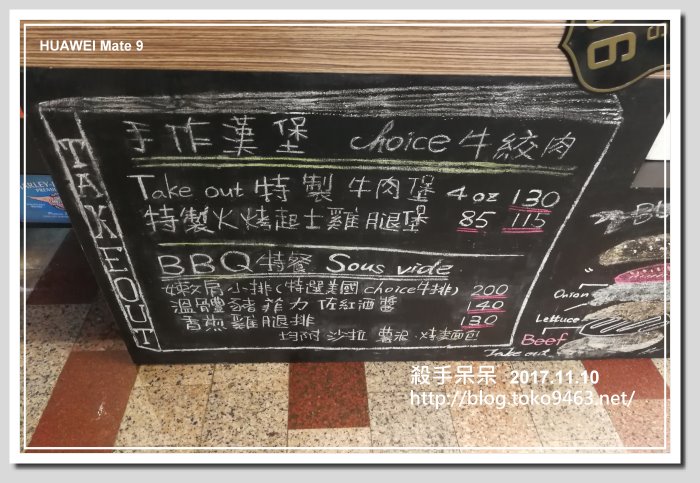 HUAWEI Mate 9
TAKEOUT
手作漢堡 choice牛絞肉
Take out 特製牛肉堡 4oz 130
特製火烤起士雞腿堡 85 115
BBQ特餐 Sous vide
嫩肩小排(特選美國choice牛排) 200
溫體豬菲力佐紅酒醬 140
香煎雞腿排 130
均附 沙拉 薯泥·烤麵包
Onion
Lettuce
Beef
Take out
殺手呆呆 2017.11.10
http://blog.toko9463.net/